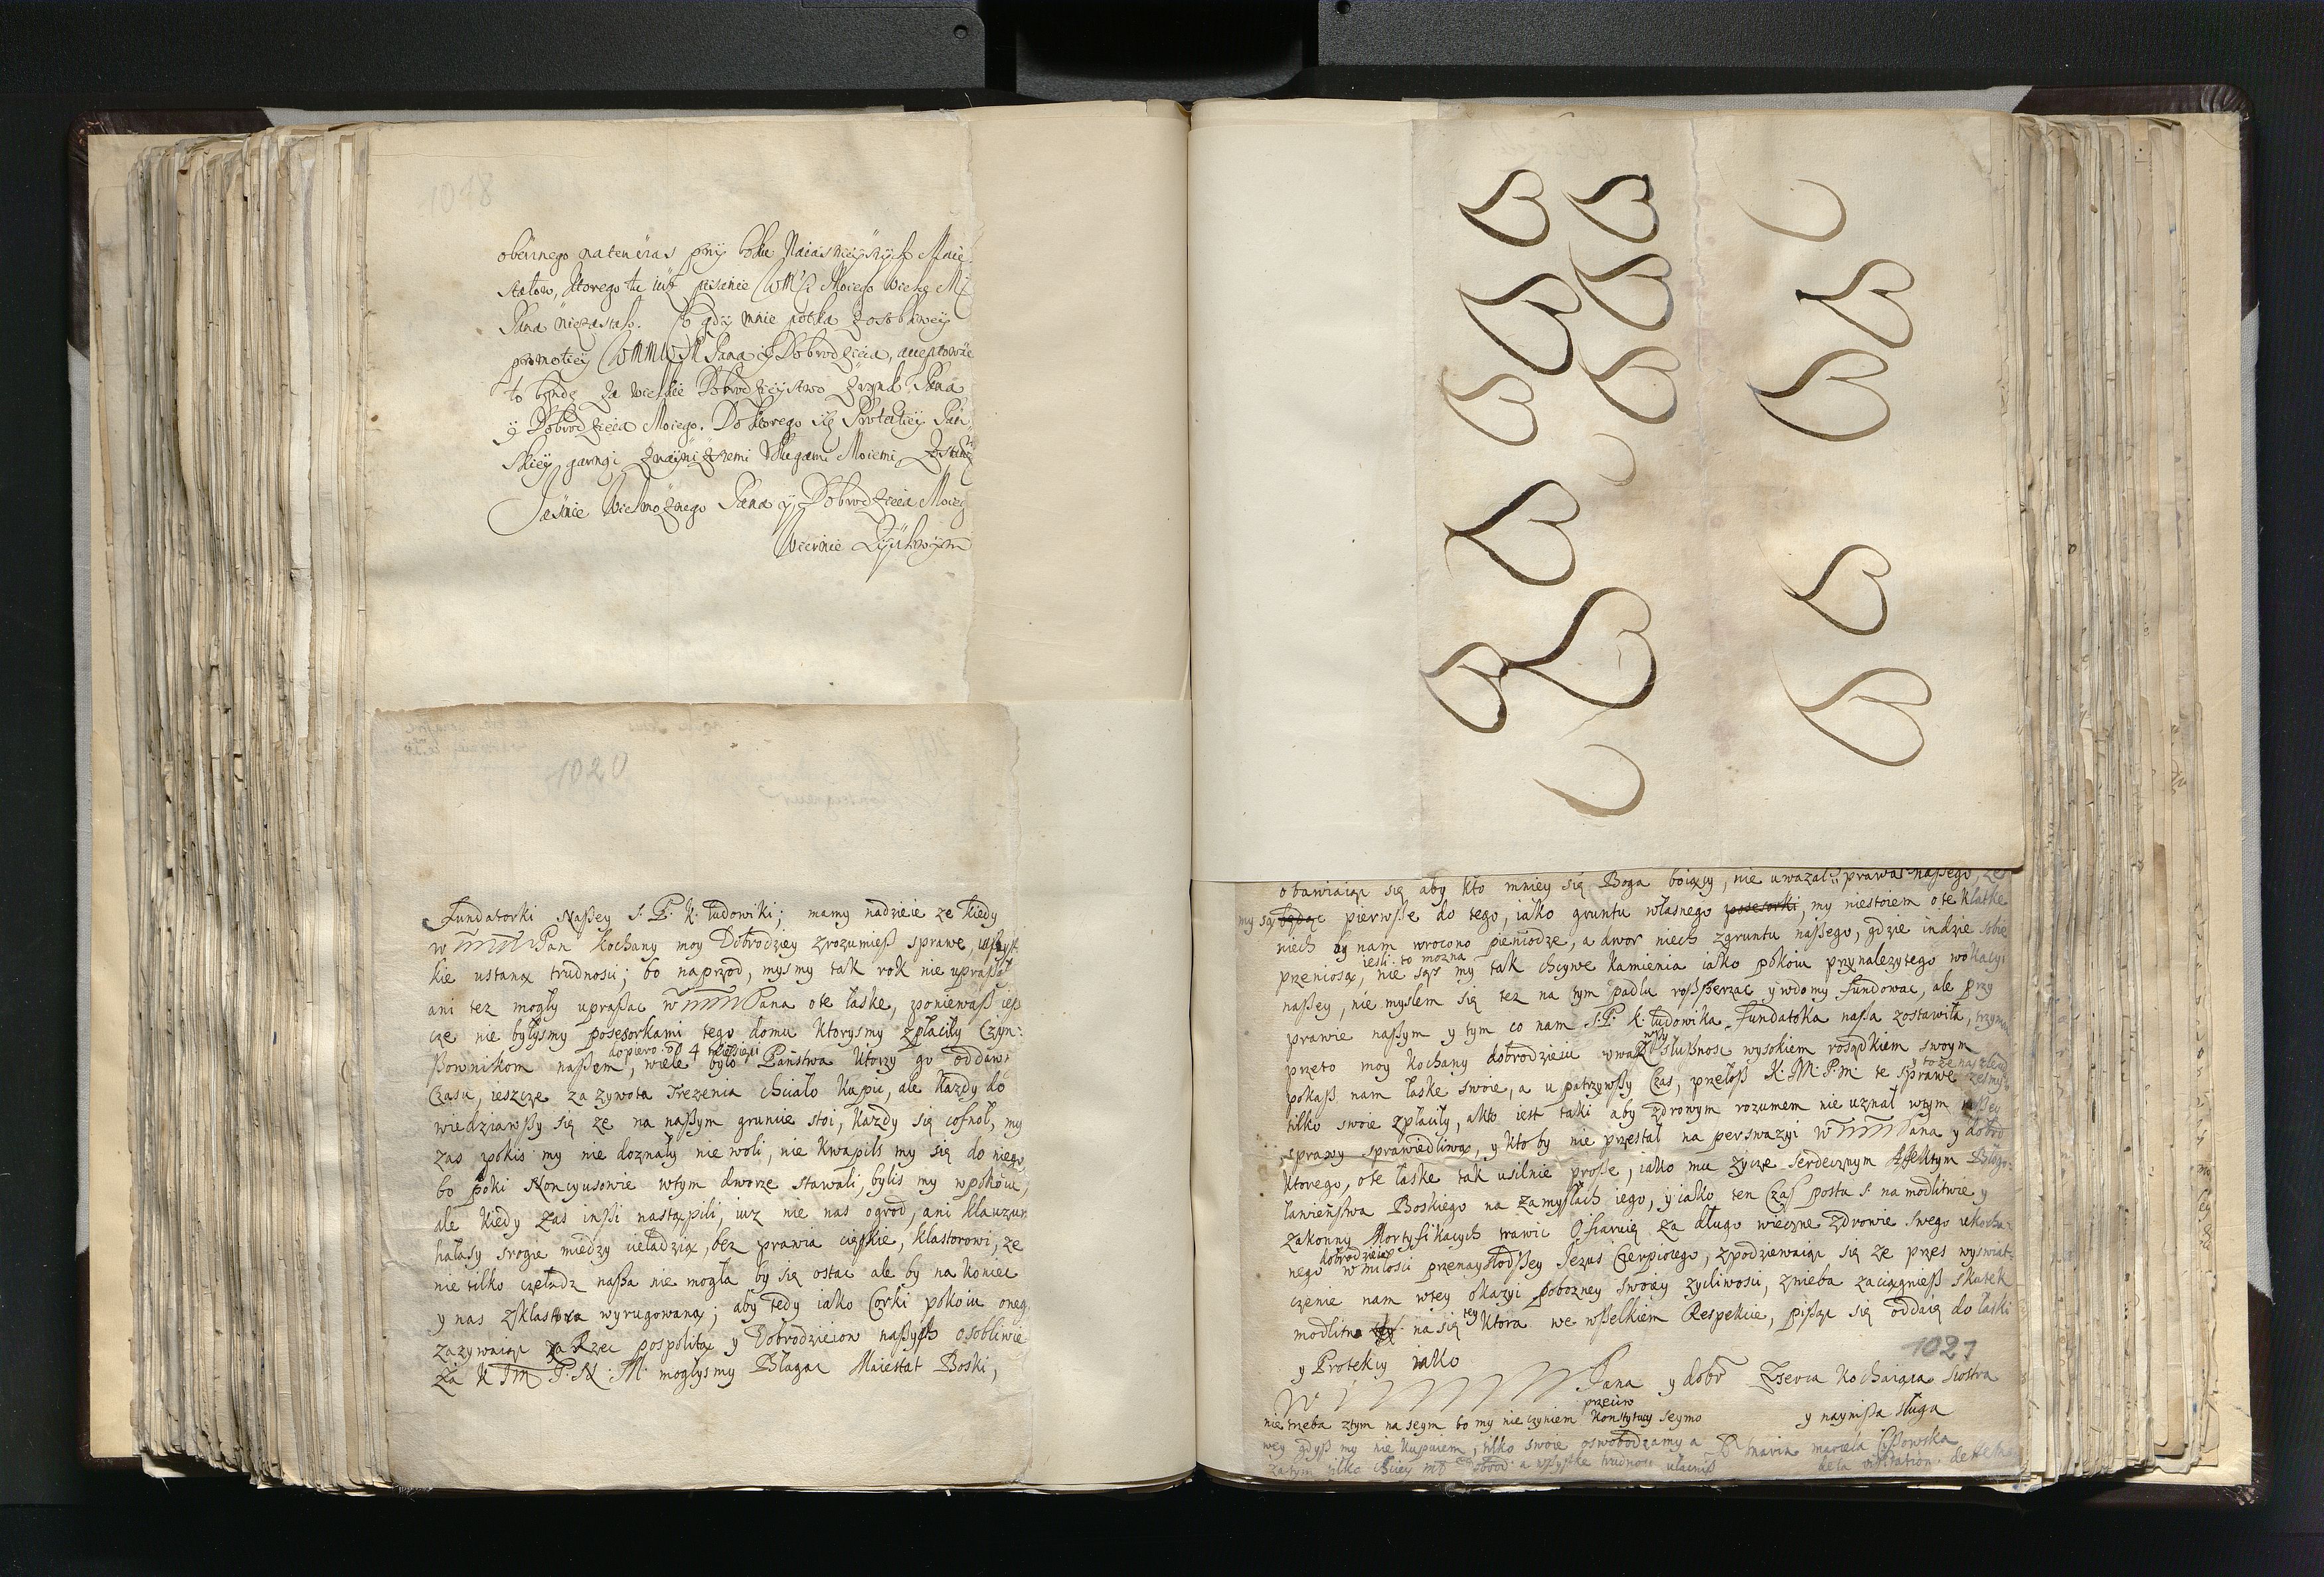 1048
obecnego natenczas przy boku Naiasnieyszych Maie
statow, ktorego tu iuż pisanie WMC Moiego Wielce M
Pana niezastało. To gdy mnie potka zosobliwey
promotiey WMMWM Pana y Dobrodzieia, acceptować
to będę za wielkie Dobrodzieystwo zrąnk Pana
y Dobrodzieia Moiego. Do ktorego się Protectiey Pań
skiey garnąc z nayniższemi Usługami Moiemi
Jaśnie Wielmożnego Pana y Dobrodzieia Moieg
Wiernie Życzliwym
1020
Fundatorki Naßey S. P. K. Ludowiki; mamy nadzieie ze kiedy
w Pan kochany moy Dobrodziey zrozumieß sprawe, wßyst
kie ustaną trudnosci; bo naprzod, mysmy tak rok nie upraßał
ani tez mogły upraßac w Pana ote łaske, poniewaß ieß
cze nie byłysmy posesorkami tego domu ktorysmy zpłaciły Czyn:
dopiero od 4 miesięcy
ßownikom naßem, wiele było Państwa ktorzy go oddaw
Czasu, ieszcze za zywota Trezenia chciało kupic, ale kazdy do
wiedziawßy się ze na naßym gruncie stoi, kazdy się cofnoł, my
zas pokis my nie doznały niewoli, nie kwapiłs my się do niego
bo poki Noncyusowie wtym dworze stawali, bylis my wpokoiu,
ale kiedy zas inßi nastąpili, iuz nie nas ogrod, ani klauzur
hałasy srogie miedzy cieladzią, bez prawia cięzkie, klastorowi, ze
nie tilko czeladz naßa nie mogła by się ostac ale by na koniec
y nas zklastora wyrugowaną; aby tedy iako Corki pokoiu oneg
zazywaiąc za Rzec pospolitą y Dobrodzieiow naßych osobliwie
za K JM P. N. M. mogłysmy Błagac Maiestat Boski,
obawiaiąc się aby kto mniey się Boga boiący, nie uwazał prawa naßego, ze
my są będąc pierwße do tego, iako gruntu własnego posesorki, my niestoiem o te klatke
niech by nam wrocono pieniodze, a dwor niech zgruntu naßego, gdzie indzie sobie
iesli to mozna
przeniosą, nie są my tak chciwe kamienia iako pokoiu przynalezytego wokacyi
naßey, nie myslem się tez na tym padlu roßßerzac y wdomy fundowac, ale przy
prawie naßym y tym co nam S. P. K. Ludowika Fundatoka naßa zostawiła, trzyma
przeto moy kochany dobrodzieiu uwaz słußnosc wysokiem rosądkiem swoym
pokaß nam łaske swoie, a upatrzywßy Czas, przełoß K. M. P. m. te sprawe zesmy
tilko swoie zpłaciły, akto iest taki aby zdrowym rozumem nie uznał wtym naßey
sprawy sprawiedliwą, y kto by nie przestał na perswazyi w Pana y dobrod
ktorego, ote łaske tak usilnie proße, iako mu zycze serdecznym Affektym Błogo:
ławieństwa Boskiego na zamysłach iego, y iako ten Czas postu S. na modlitwie y
zakonny Mortyfikacych trawic Ofiaruię za długo wieczne zdrowie swego ukocha:
dobrodzieia
nego w miłosci przenaysłodßey Jezus Cierpiotego, zpodziewaiąc się ze przes wyswiat
czenie nam wtey okazyi pobozney swoiey zycliwosci, znieba zaciągnieß skutek
modlitw na się tey ktora we wßelkiem Respekcie, pißąc się oddaię do łaski
1021
y Protekcy iako
Pana y dobr Zserca kochaiąca siostra
przeciw
nie trzeba ztym na seym bo my nie czyniem konstytucy seymo
y naynißa sługa
wey gdyß my nie kupuiem, tilko swoie oswobodzamy a
zatym tilko chciey dobrod a wßystke trudnosc ułacniß